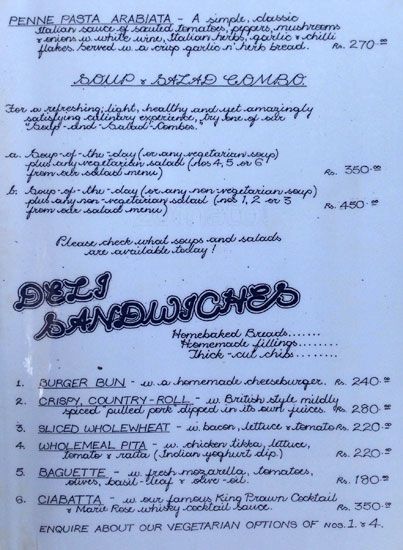 PENNE PASTA ARABIATA - A simple, classic
Italian sauce of sauted tomatoes, peppers, mushrooms
& onions w. white wine, Italian herbs, garlic & chilli
flakes. Served w. a crisp garlic n' herb bread. Rs. 270.00
SOUP & SALAD COMBO.
For a refreshing, light, healthy and yet amazingly
satisfying culinary experience, try one of our
"Soup-and-Salad-Combos."
a. Soup-of-the-day (or any vegetarian soup)
plus any vegetarian salad (nos 4, 5 or 6
from our salad menu) Rs. 350.00
b. Soup-of-the-day (or any non-vegetarian soup)
plus any non-vegetarian salad (nos 1, 2 or 3
from our salad menu) Rs. 450.00
Please check what soups and salads
are available today!
DELI
SANDWICHES
Homebaked Breads.......
Homemade fillings.......
Thick-cut chips.......
1. BURGER BUN - w. a homemade cheeseburger. Rs. 240.00
2. CRISPY, COUNTRY-ROLL - w. British style mildly
spiced 'pulled' pork dipped in its own juices. Rs. 280.00
3. SLICED WHOLEWHEAT - w. bacon, lettuce & tomato Rs. 220.00
4. WHOLEMEAL PITA - w. chicken tikka, lettuce,
tomato & raita (Indian yoghurt dip.) Rs. 220.00
5. BAGUETTE - w. fresh mozarella, tomatoes,
olives, basil-leaf & olive-oil. Rs. 190.00
6. CIABATTA - w. our famous King Prawn Cocktail
& Marie Rose whisky cocktail sauce. Rs. 350.00
ENQUIRE ABOUT OUR VEGETARIAN OPTIONS OF NOS. 1. & 4.